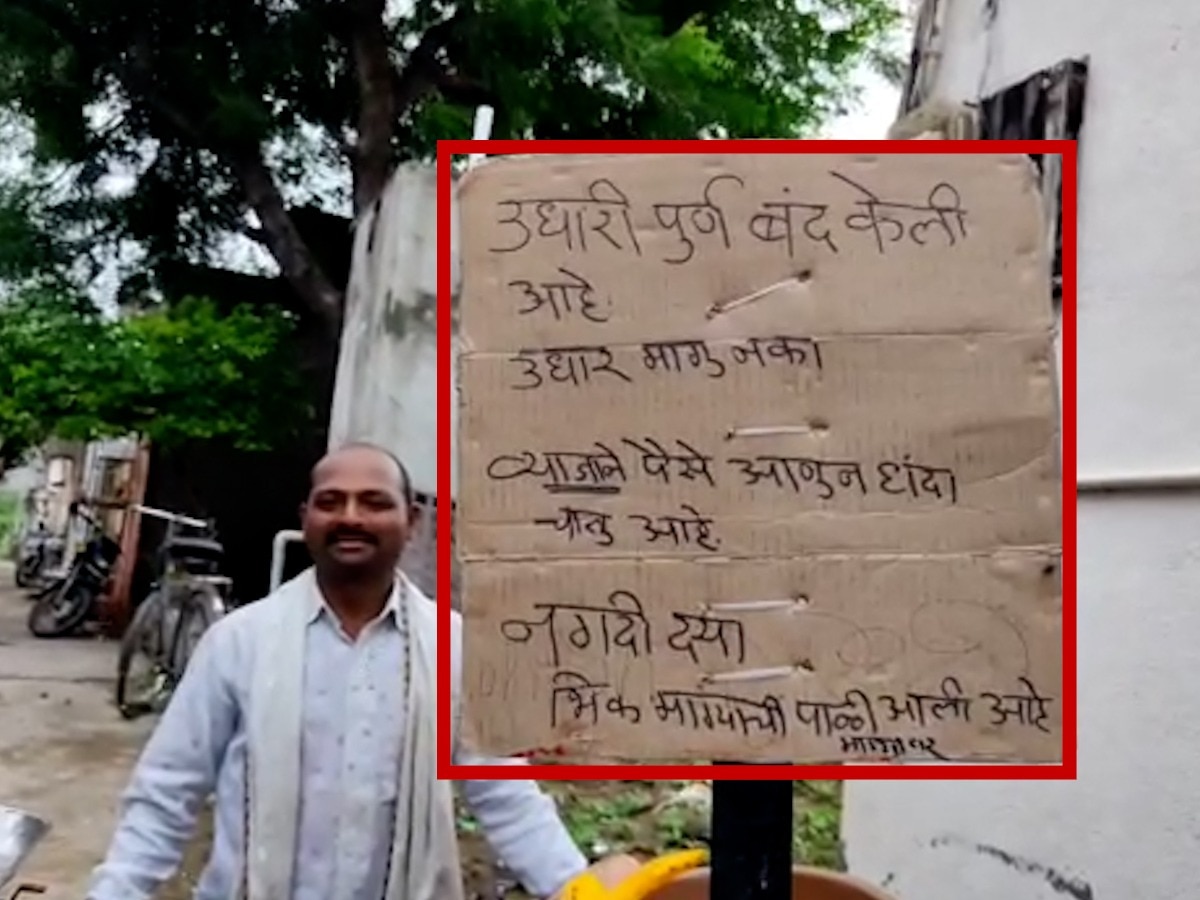 उधारी पुर्ण बंद केली
आहे.
उधार मागु नका
व्याजाने पैसे आणुन धंदा
चालु आहे.
नगदी दया
भिक मागयाची पाळी आली आहे